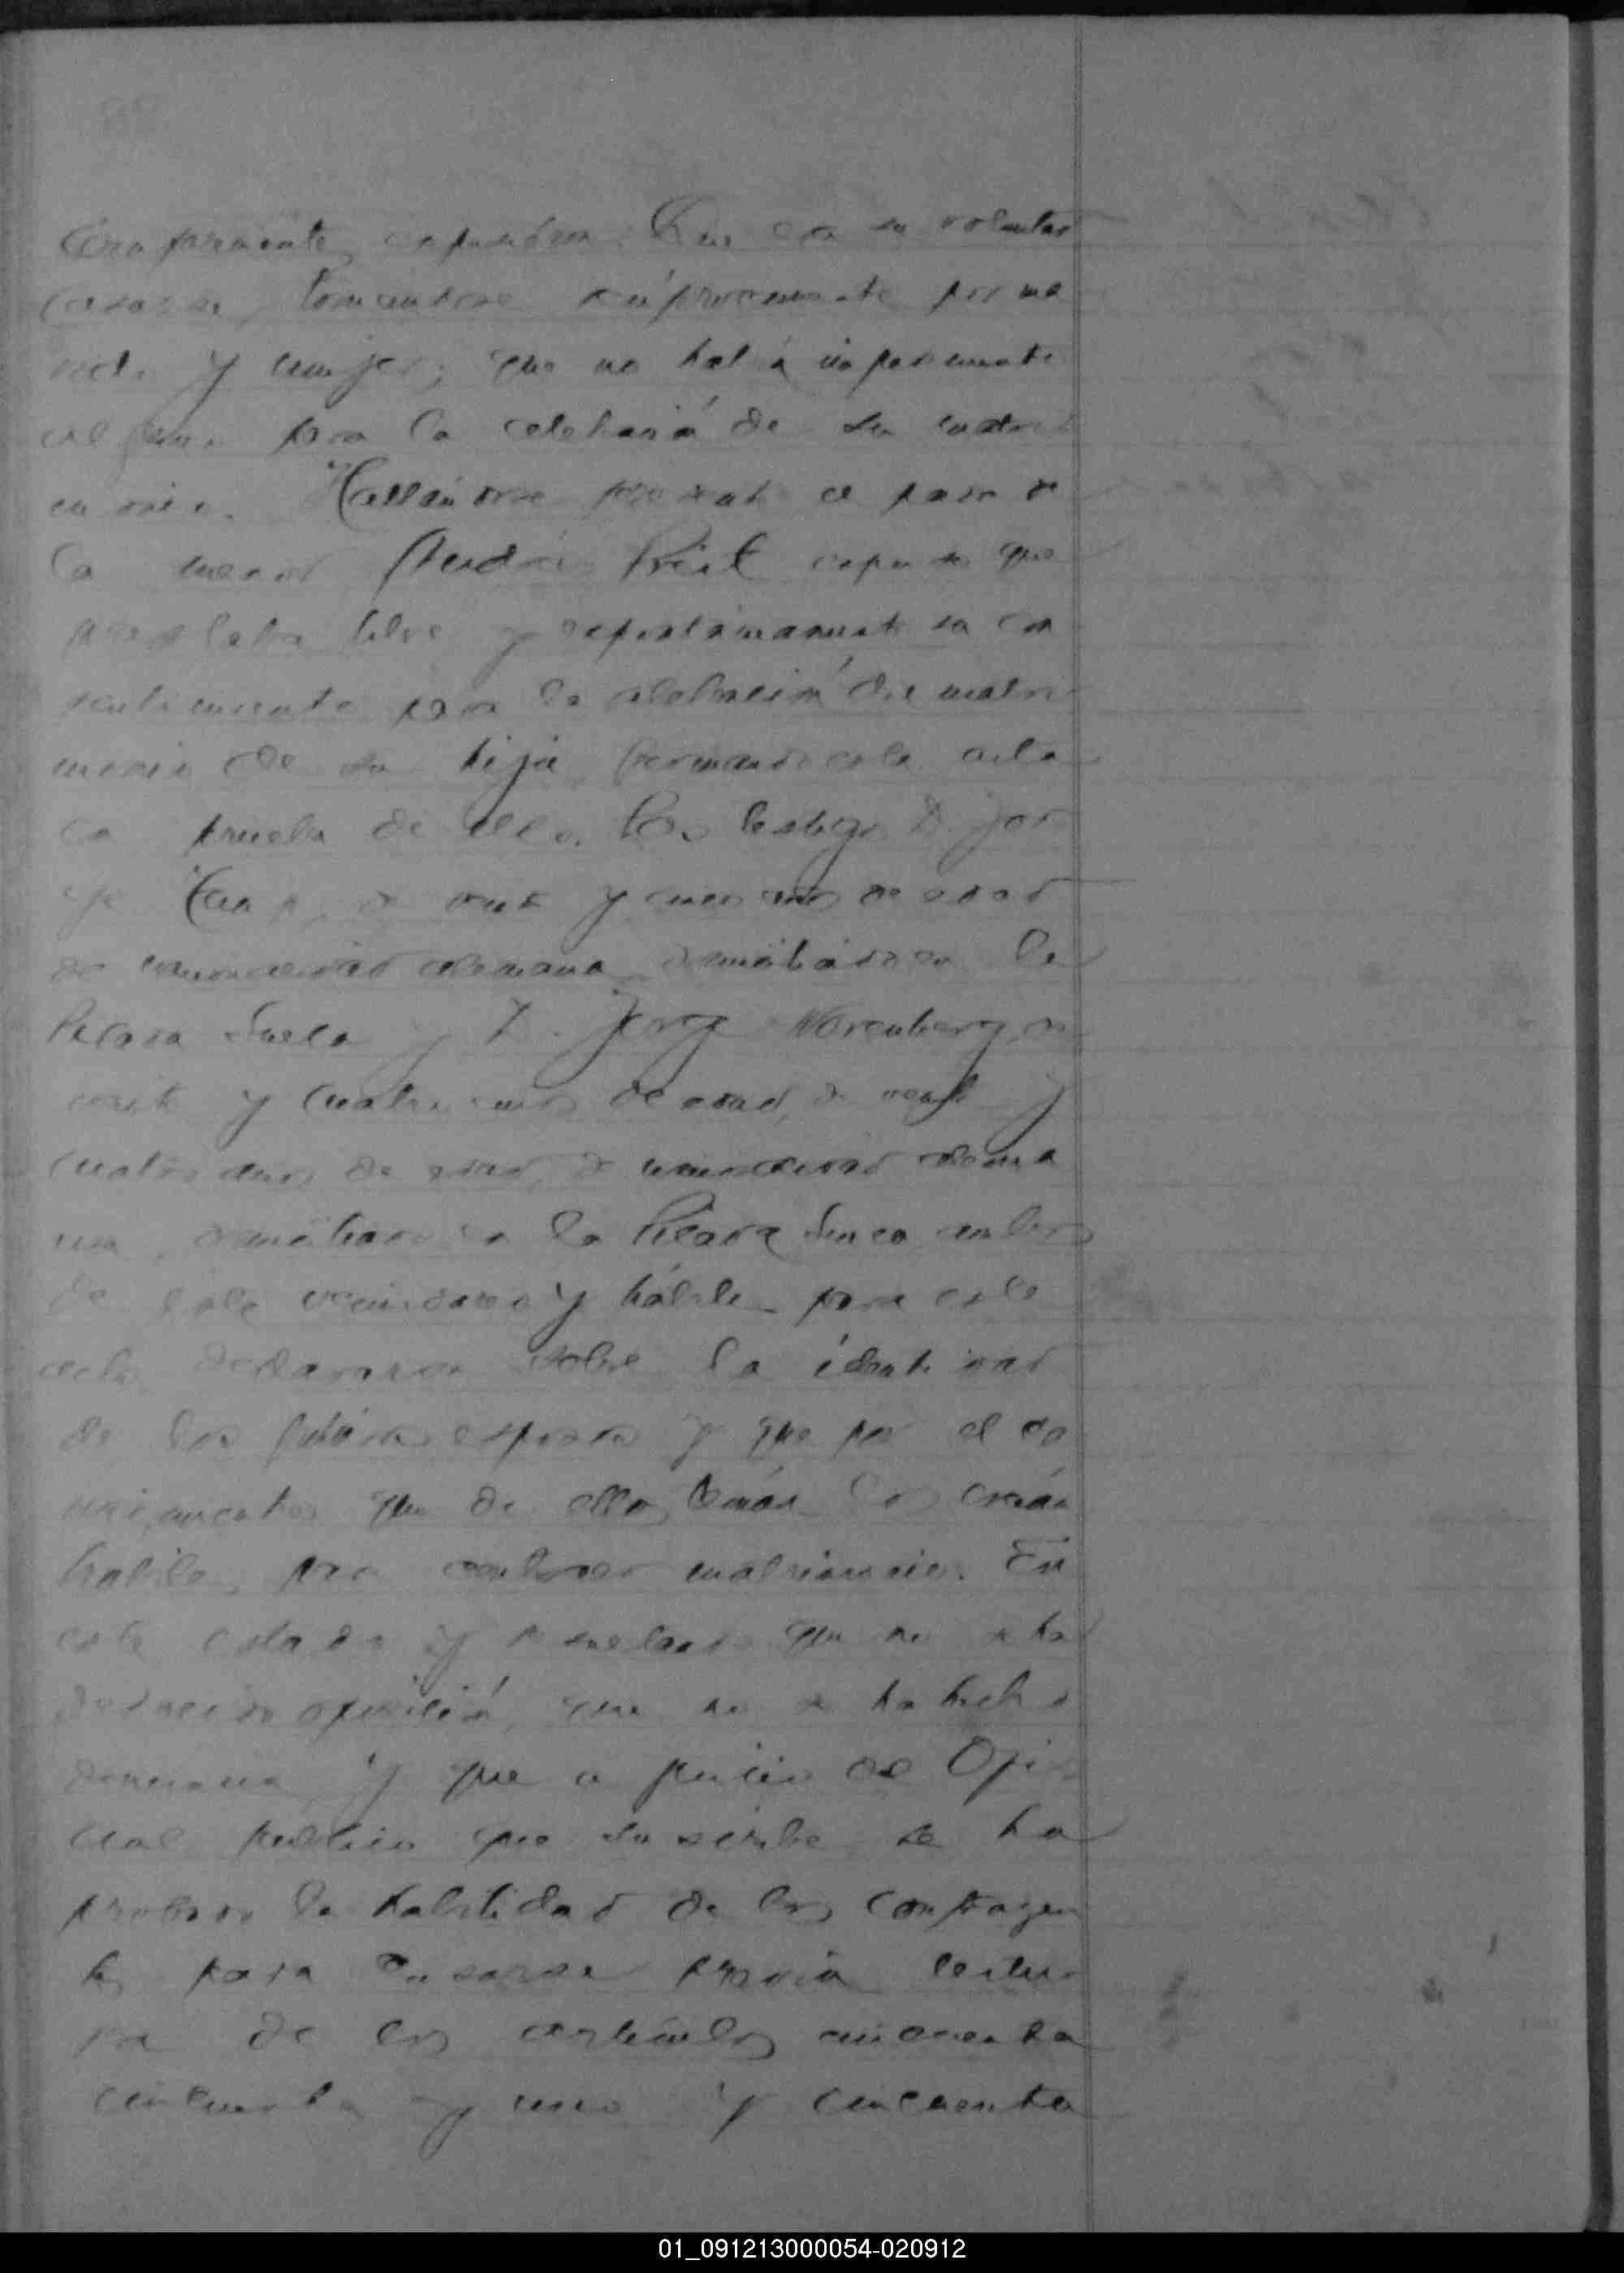 Comparecientes expusieron: Que era su voluntad
casarse, tomándose recíprocamente por ma
rido y mujer; que no había impedimento
alguno para la celebración de su matri
monio. Hallándose presente el padre de
la menor Andrés expuso que
prestaba libre y espontáneamente su con
sentimiento para la celebración del matri
monio de su hija firmando esta acta
en prueba de ello. Los testigos D. Jor
ge de veinte y años de edad
de nacionalidad alemana domiciliado en la
y D. Jorge de
veinte y cuatro años de edad, de veinte y
cuatro años de edad, de nacionalidad alema
na, domiciliado en la ambos
de este vecindario y hábiles para este
acto declararon sobre la identidad
de los futuros esposos y que por el co
nocimiento que de ellos tenían los creían
hábiles para contraer matrimonio. En
este estado y resultando que no se ha
deducido oposición, que no se ha hecho
denuncia y que a juicio del Ofi
cial público que suscribe se ha
probado la habilidad de los contrayen
tes para casarse previa lectu
ra de los artículos cincuenta
cincuenta y uno y cincuenta
01_091213000054-020912